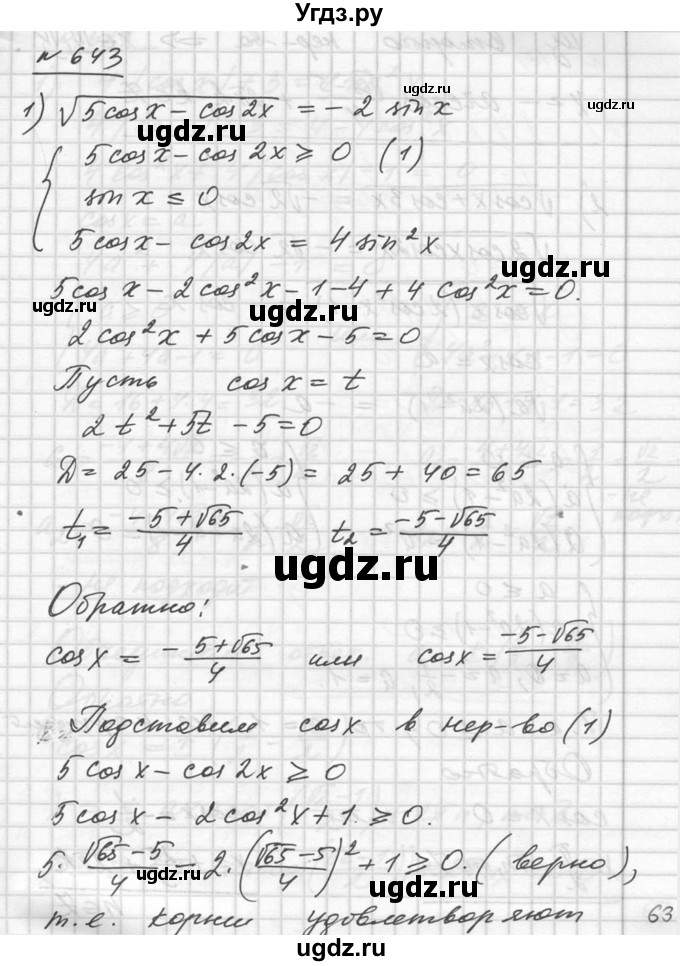 Угдз.ру
N 643
ugdz.ru
1) √(5cosx − cos2x) = −2 sinx
ugdz.ru
ugdz.ru
5cosx − cos2x ≥ 0 (1)
sinx ≤ 0
5cosx − cos2x = 4sin²x
ugdz.ru
5cosx − 2cos²x − 1 − 4 + 4cos²x = 0.
ugdz.ru
ugdz.ru
2cos²x + 5cosx − 5 = 0
Пусть cosx = t
2t² + 5t − 5 = 0
D = 25 − 4·2·(−5) = 25 + 40 = 65
ugdz.ru
t₁ = (−5+√65)/4 t₂ = (−5−√65)/4
ugdz.ru
Обратно:
cosx = −(5+√65)/4 или cosx = (−5−√65)/4
ugdz.ru
ugdz.ru
Подставим cosx в нер-во (1)
5cosx − cos2x ≥ 0
ugdz.ru
5cosx − 2cos²x + 1 ≥ 0.
ugdz.ru
5·(√65−5)/4 − 2·((√65−5)/4)² + 1 ≥ 0. (верно),
ugdz.ru
ugdz.ru
ugdz.ru
т.е. корни удовлетворяют
63
ugdz.ru
ugdz.ru